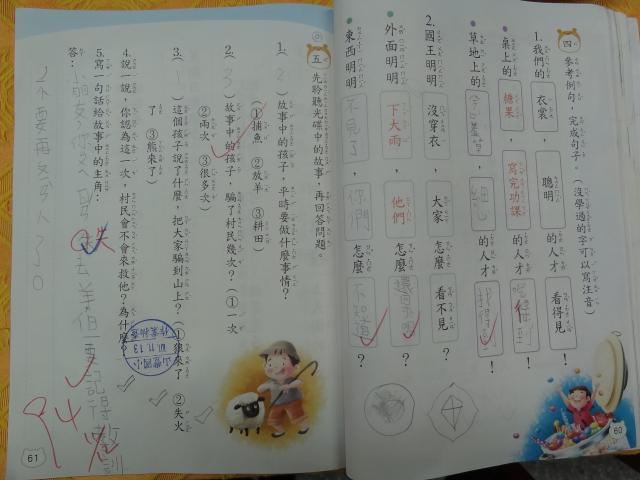 四 參考例句，完成句子。（沒學過的字可以寫注音）
1. 我們的 衣裳，聰明 的人才 看得見！
桌上的 糖果，寫完功課 的人才 吃得到！
草地上的
的人才 找得
！
2. 國王明明 沒穿衣，大家 怎麼 看不見？
外面明明 下大雨，他們 怎麼
？
東西明明 不見了，你們 怎麼 不知道？
60
五 先聆聽光碟中的故事，再回答問題。
1.（2）故事中的孩子，平時要做什麼事情？
（①捕魚 ②放羊 ③耕田）
2.（3）故事中的孩子，騙了村民幾次？（①一次
②兩次 ③很多次）
3.（1）這個孩子說了什麼，把大家騙到山上？（①狼來了 ②失火
了 ③熊來了）
4. 說一說，你認為這一次，村民會不會來救他？為什麼？
5. 寫一句話給故事中的主角：
答：
羊，但一要記得教訓
不要再
人了。
失
94
61